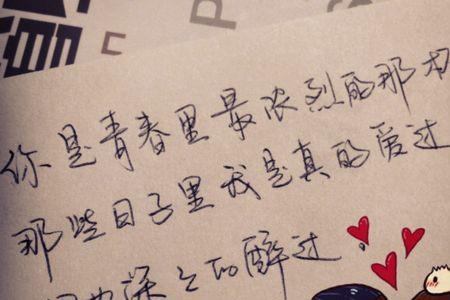 你是青春里最浓烈的那
那些日子里我是真的爱过
深深的醉过